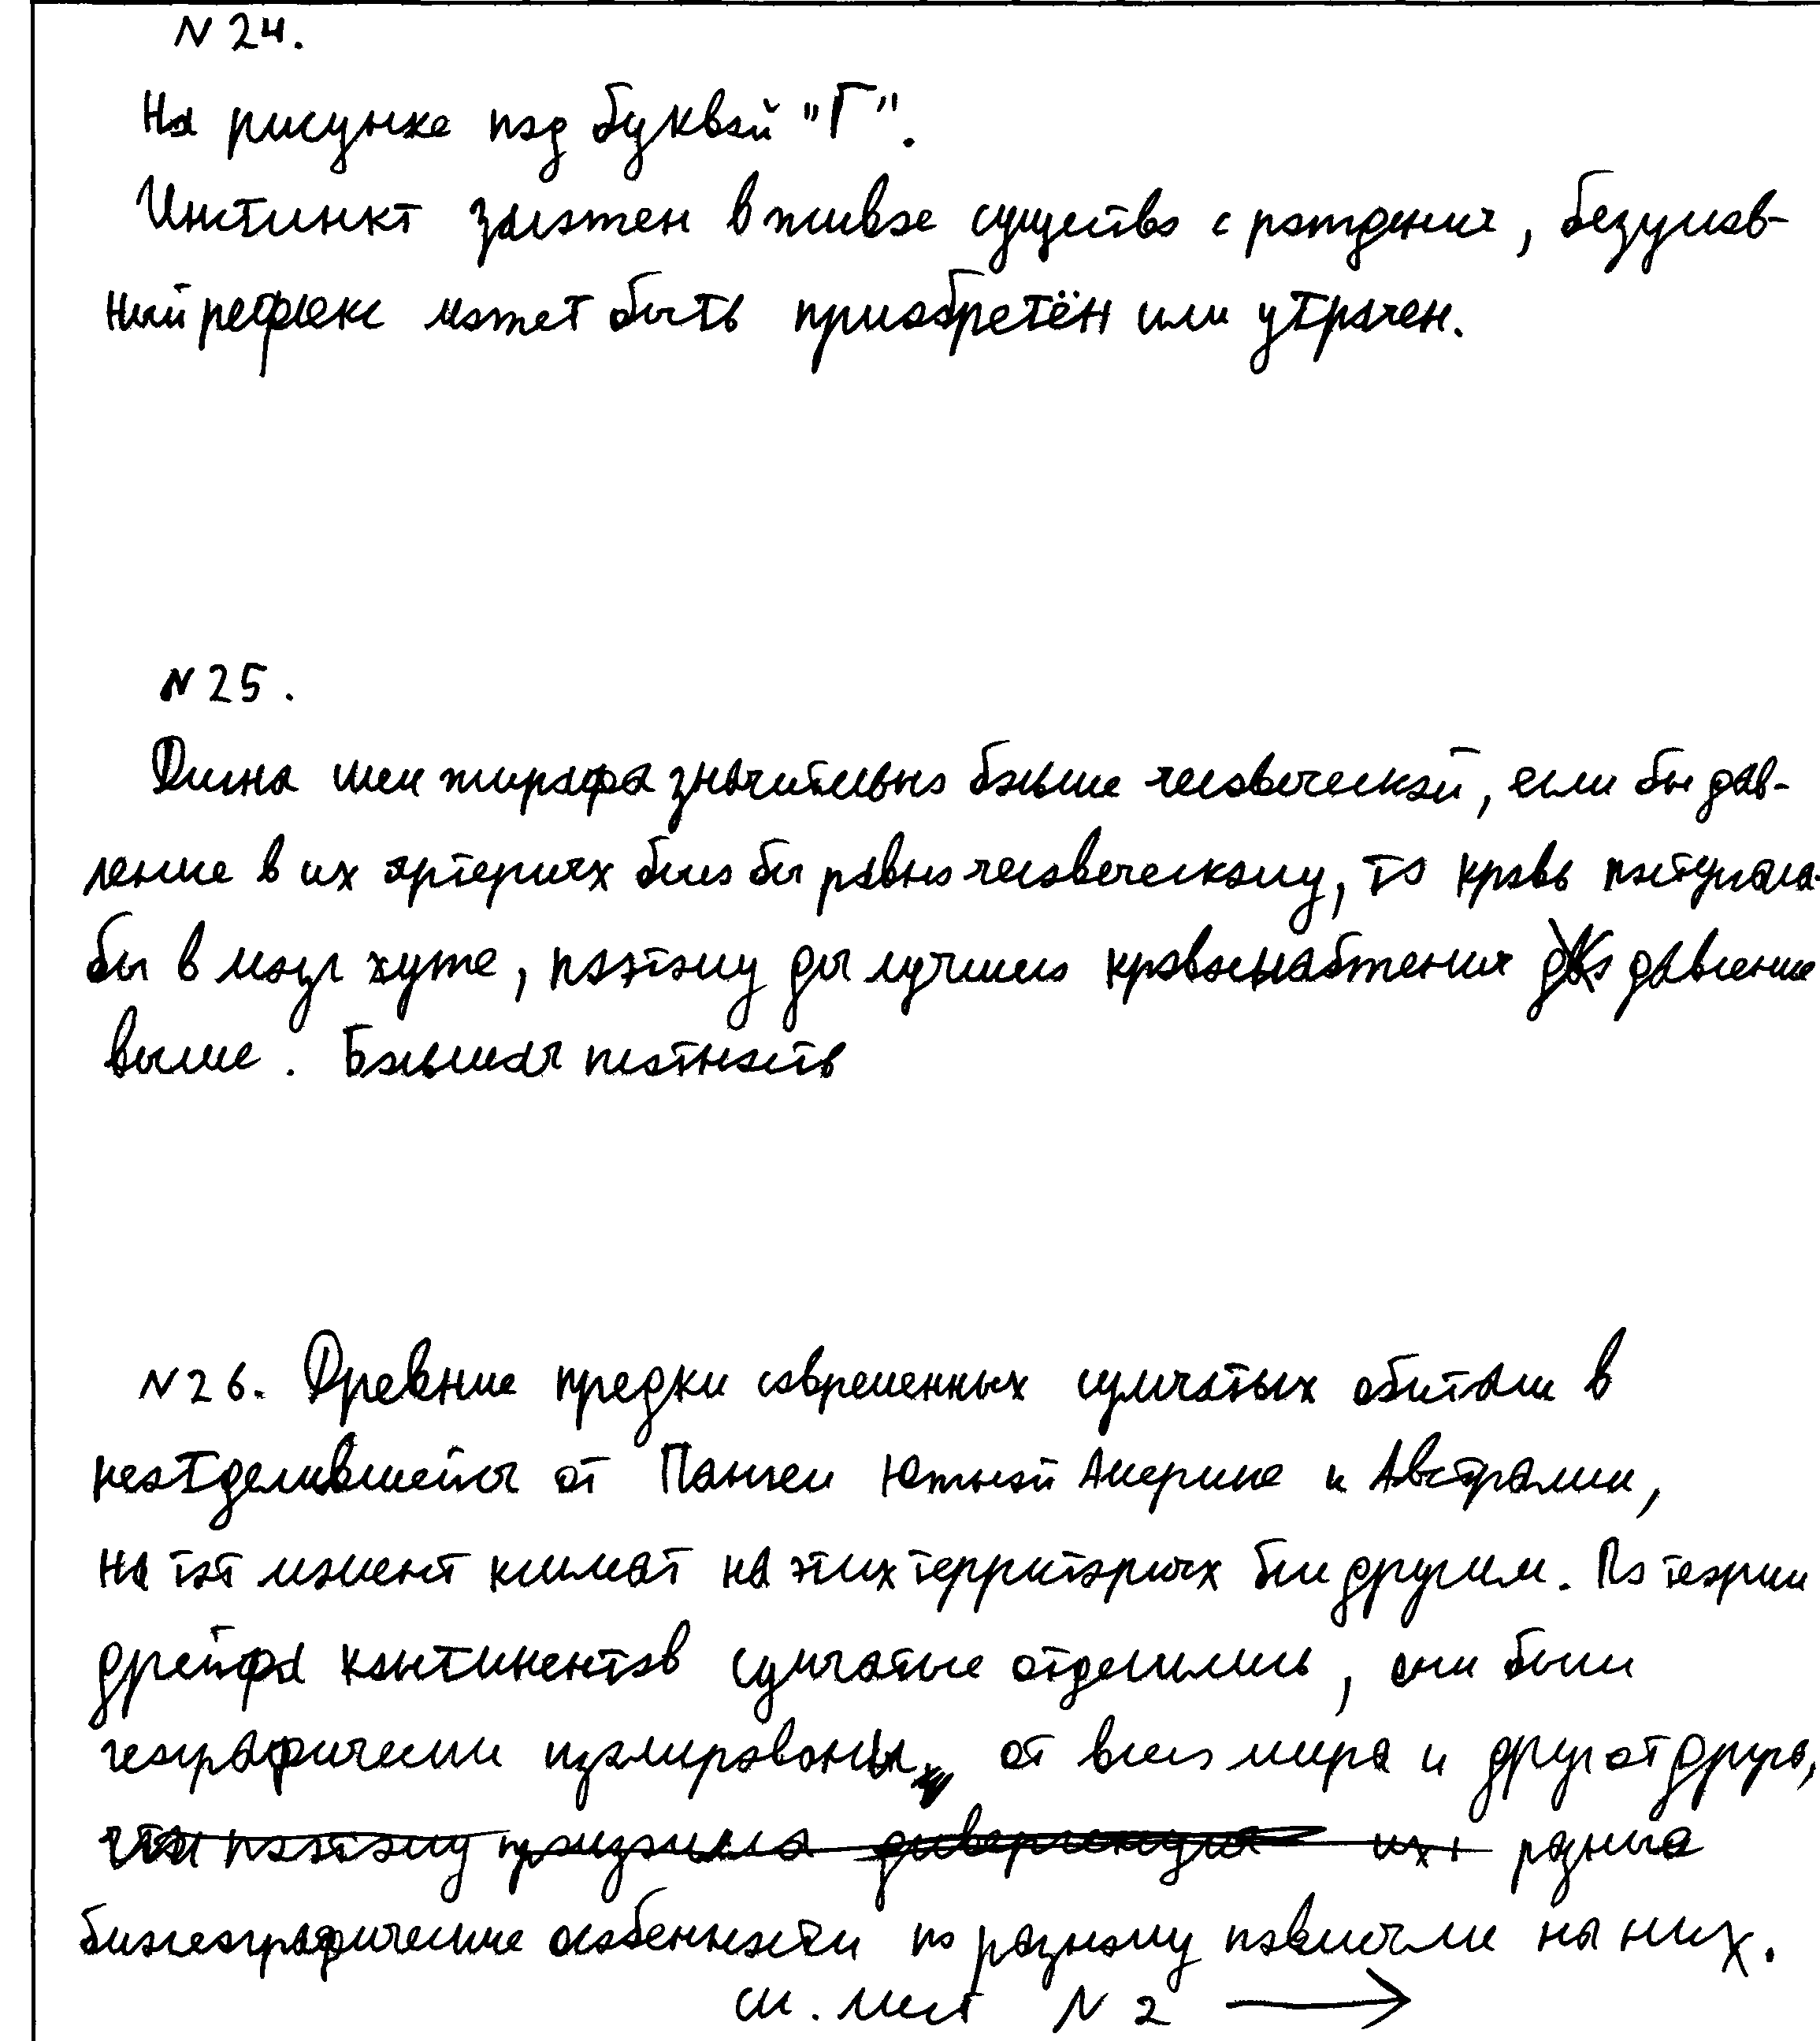 N 24.
На рисунке под буквой "Г".
Инстинкт заложен в живое существо с рождения, безуслов-
ный рефлекс может быть приобретён или утрачен.
N 25.
Длина шеи жирафа значительно больше человеческой, если бы дав-
ление в их артериях было бы равно человеческому, то кровь поступала
бы в мозг хуже, поэтому для лучшего кровоснабжения давление
выше. Большая плотность
N 26. Древние предки современных сумчатых обитали в
неотделившейся от Пангеи Южной Америке и Австралии,
на тот момент климат на этих территориях был другим. По теории
дрейфа континентов сумчатые отделились, они были
географически изолированы от всего мира и друг от друга,
что поэтому произошла дивергенция их разные
биогеографические особенности по разному повлияли на них.
см. лист N 2 →